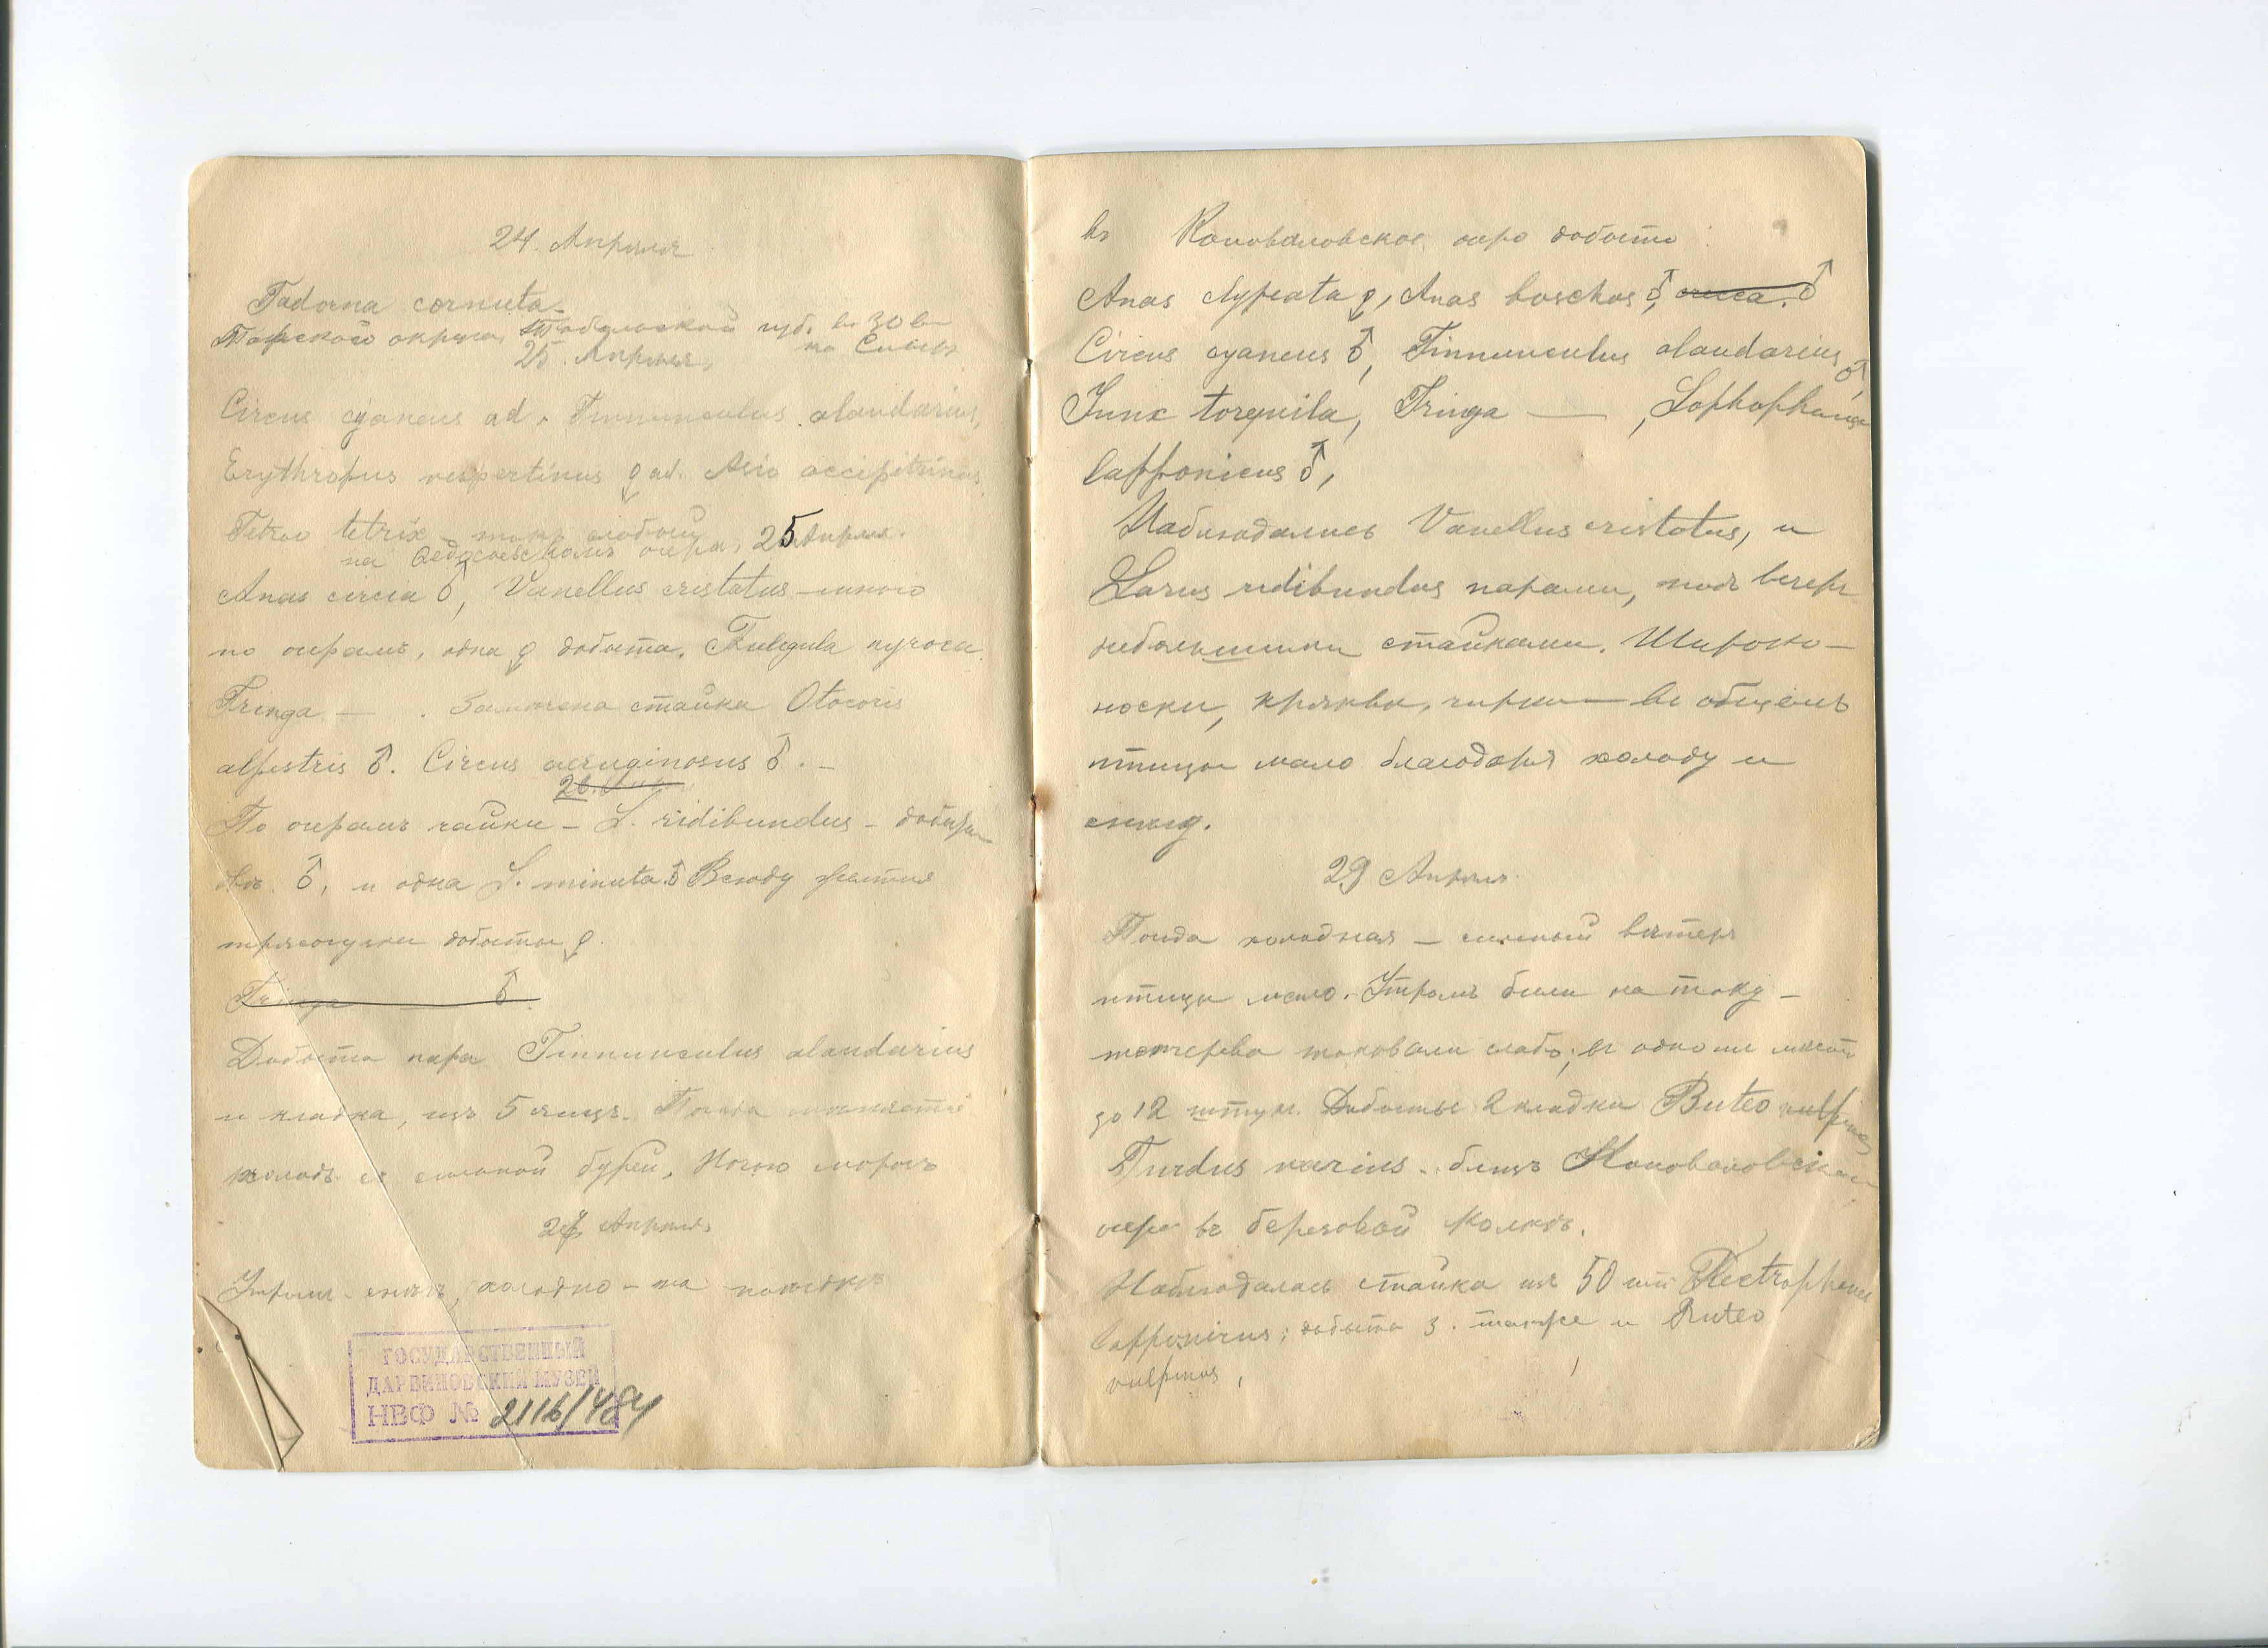 24. Апрѣля
Tadorna cornuta
Тарскаго округа, Тобольской губ. въ 30 в.
25. Апрѣля, на Сѣверъ
Circus cyaneus ad. Tinnunculus alaudarius,
Erythropus vespertinus ♀ ad. Asio accipitrinus,
Tetrao tetrix – токъ слабый
на Федосеевскомъ озерѣ, 25 Апрѣля.
Anas circia ♂, Vanellus cristatus – много
по озерамъ, одна ♀ добыта. Fuligula
Tringa — . Замѣчена стайка Otocoris
alpestris ♂. Circus aeruginosus ♂. –
26.
По озерамъ чайки – L. ridibundus – добыты
двѣ ♂, и одна L. minuta ♂ Всюду желтыя
трясогузки добыты ♀.
Tringa ♂
Добыта пара Tinnunculus alaudarius
и кладка, изъ 5 яицъ. Погода
холодъ съ сильной бурей, Ночью морозъ
Апрѣля
Утромъ снѣгъ, холодно – на поѣздкѣ
ГОСУДАРСТВЕННЫЙ
ДАРВИНОВСКИЙ МУЗЕЙ
НВФ № 2116/484
въ Коноваловское озеро добыто:
Anas clypeata ♀, Anas boschas ♂, crecca. ♂
Circus cyaneus ♂, Tinnunculus alaudarius ♂,
Junx torquila, Tringa — , Lophophanes
lapponicus ♂,
Наблюдались Vanellus cristatus, и
Larus ridibundus парами, подъ вечеръ
небольшими стайками. Широко-
носки, кряквы, чирки – въ общемъ
птицы мало благодаря холоду и
снѣгу.
29 Апрѣля.
Погода холодная – сильный вѣтеръ
птицы мало. Утромъ были на току –
тетерева токовали слабо; въ одномъ мѣстѣ
до 12 штук. Добыты 2 кладки Buteo vulpinus
Turdus varius – близъ Коноваловскаго
озера въ березовой колкѣ.
Наблюдалась стайка изъ 50 шт Plectrophanes
lapponicus; добыто 3. также и Buteo
vulpinus,